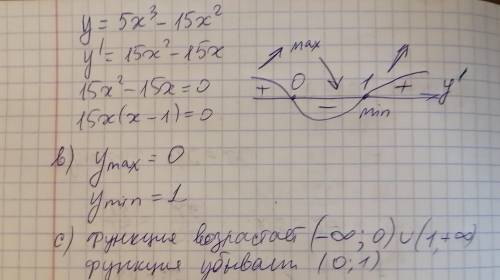 y = 5x³ - 15x²
y' = 15x² - 15x
15x² - 15x = 0
15x(x - 1) = 0
max
+ 0 - 1 + y'
min
в) y max = 0
y min = 1
с) функция возрастает (-∞; 0) ∪ (1, +∞)
функция убывает (0; 1)